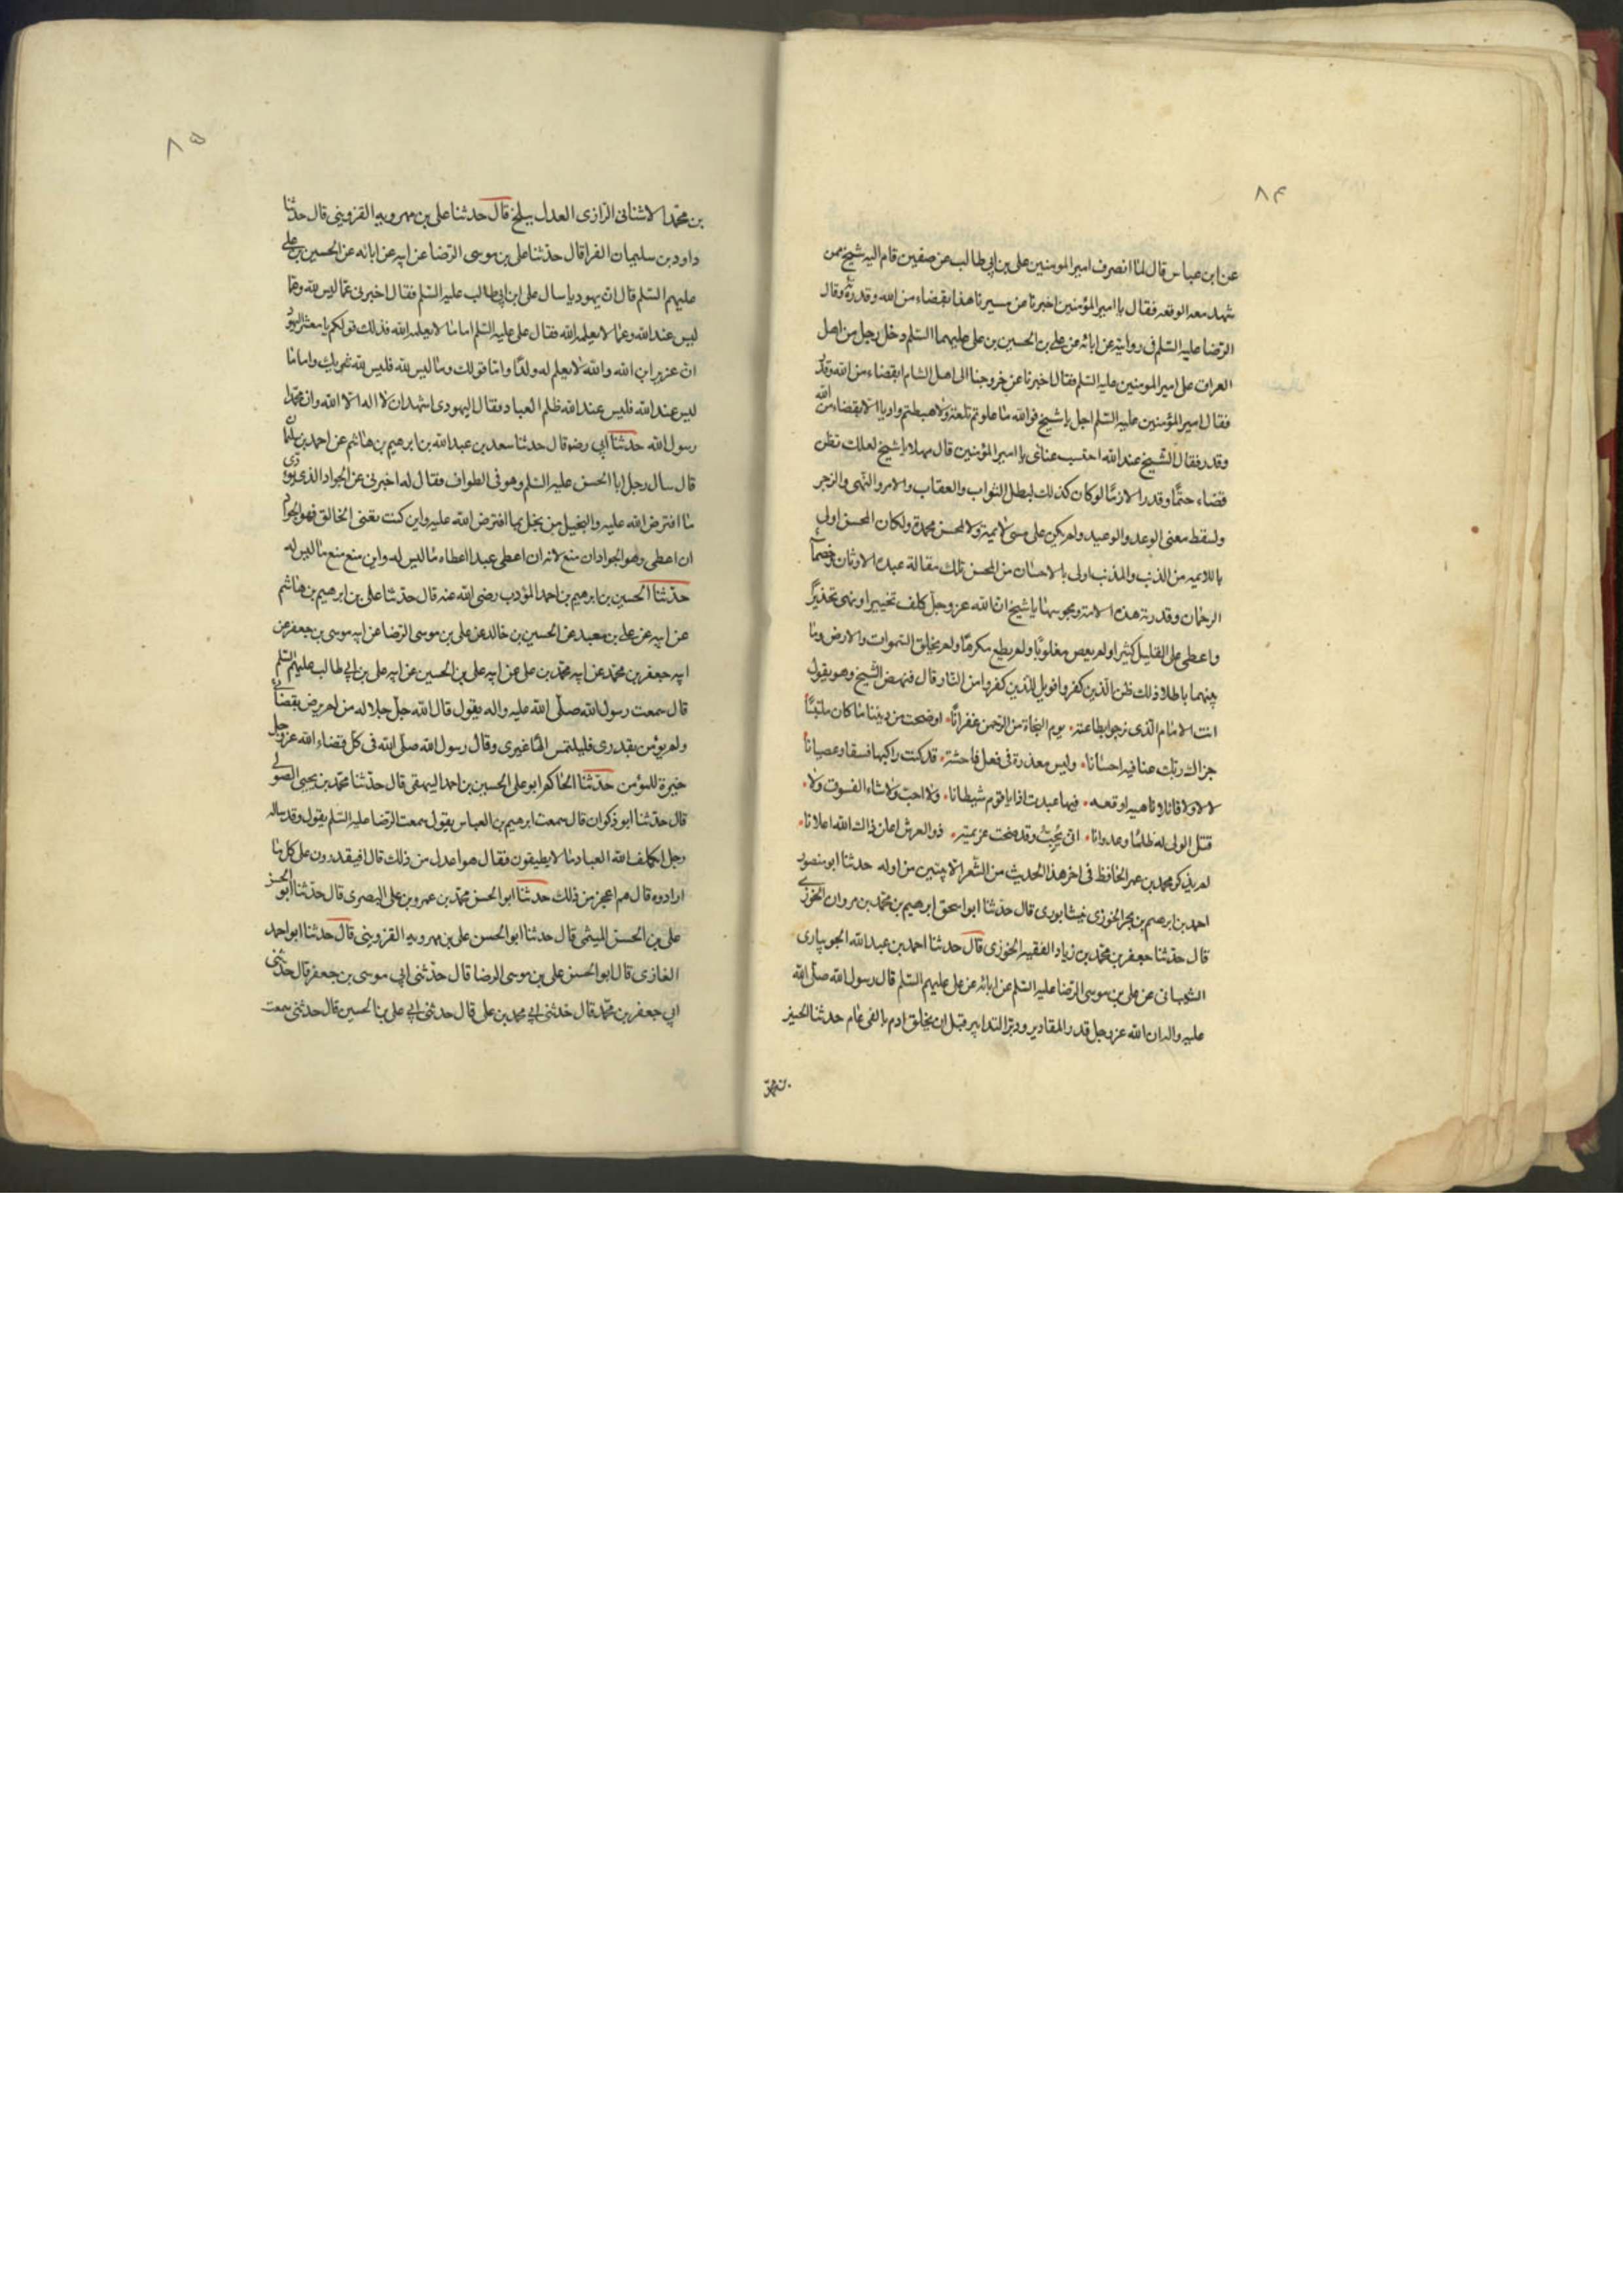 ٨٤
عن ابن عباس قال لما انصرف امير المومنين على بن ابي طالب عن صفين قام اليه شيخ ممن
شهد معه الوقعه فقال يا امير المؤمنين اخبرنا عن مسيرنا هذا بقضاء من الله وقدره وقال
الرضا عليه السلم فى روايته عن ابائه عن على بن الحسين بن على عليهما السلم دخل رجل من اهل
العراق على امير المومنين عليه السلم فقال اخبرنا عن خروجنا الى اهل الشام ابقضاء من الله وقدر
فقال امير المؤمنين عليه السلم اجل يا شيخ فوالله ما علوتم تلعة ولا هبطتم واديا الا بقضاء من الله
وقدر فقال الشيخ عند الله احتسب عنائى يا امير المؤمنين قال مهلا يا شيخ لعلك تظن
قضاء حتما وقدرا لازما لو كان كذلك لبطل الثواب والعقاب والامر والنهى والزجر
ولسقط معنى الوعد والوعيد ولم يكن على مسئ لائمة ولا لمحسن محمدة ولكان المحسن اولى
باللائمه من الذنب والمذنب اولى بالاحسان من المحسن تلك مقالة عبدة الاوثان وخصماء
الرحمان وقدرية هذه الامة ومجوسها يا شيخ ان الله عز وجل كلف تخييرا ونهى تحذيرا
واعطى على القليل كثيرا ولم يعص مغلوبا ولم يطع مكرها ولم يخلق السموات والارض وما
بينهما باطلا ذلك ظن الذين كفروا فويل للذين كفروا من النار قال فنهض الشيخ وهو يقول
انت الامام الذى نرجو بطاعته ۰ يوم النجاة من الرحمن غفرانا ۰ اوضحت من ديننا ما كان ملتبسا
جزاك ربك عنا فيه احسانا ۰ وليس معذرة فى فعل فاحشة ۰ قد كنت راكبها فسقا وعصيانا
لا لا ولا قائلا ناهيه اوقعه ۰ فيها عبدت اذا ياقوم شيطانا ۰ ولا احب ولا شاء الفسوق ولا ۰
قتل الولى له ظلما وعدوانا ۰ انى يحب وقد صحت عزيمته ۰ ذو العرش اعلن ذاك الله اعلانا ۰
لم يذكر محمد بن عمر الحافظ فى اخر هذا الحديث من الشعر الا بيتين من اوله حدثنا ابو منصور
احمد بن ابرهيم بن بكر الخوزى نيشابورى قال حدثنا ابو اسحق ابرهيم بن محمد بن مروان الخوزى
قال حدثنا جعفر بن محمد بن زياد الفقيه الخوزى قال حدثنا احمد بن عبد الله الجويبارى
الشيبانى عن على بن موسى الرضا عليه السلم عن ابائه عن على عليهم السلم قال رسول الله صلى الله
عليه واله ان الله عز وجل قدر المقادير ودبر التدابير قبل ان يخلق ادم بالفى عام حدثنا الحسين
بن محمد
٨٥
بن محمد الاشنانى الرازى العدل ببلخ قال حدثنا على بن مهرويه القزوينى قال حدثنا
داود بن سليمان الفرا قال حدثنا على بن موسى الرضا عن ابيه عن ابائه عن الحسين بن على
عليهم السلم قال ان يهوديا سال على ابن ابى طالب عليه السلم فقال اخبرنى عما ليس لله وعما
ليس عند الله وعما لا يعلمه الله فقال على عليه السلم اما ما لا يعلمه الله فذلك قولكم يا معشر اليهود
ان عزير ابن الله والله لا يعلم له ولدا واما قولك وما ليس لله فليس لله شريك واما ما
ليس عند الله فليس عند الله ظلم العباد فقال اليهودى اشهد ان لا اله الا الله وان محمدا
رسول الله حدثنا ابى رضو قال حدثنا سعد بن عبد الله بن ابرهيم بن هاشم عن احمد بن سليمان
قال سال رجل ابا الحسن عليه السلم وهو فى الطواف فقال له اخبرنى عن الجواد الذى يؤدى
ما افترض الله عليه والبخيل من بخل بما افترض الله عليه وان كنت تعنى الخالق فهو الجواد
ان اعطى وهو الجواد ان منع لانه ان اعطى عبدا اعطاه ما ليس له وان منع منع ما ليس له
حدثنا الحسين بن ابرهيم بن احمد المؤدب رضى الله عنه قال حدثنا على بن ابرهيم بن هاشم
عن ابيه عن على بن معبد عن الحسين بن خالد عن على بن موسى الرضا عن ابيه موسى بن جعفر عن
ابيه جعفر بن محمد عن ابيه محمد بن على عن ابيه على بن الحسين عن ابيه على بن ابي طالب عليهم السلم
قال سمعت رسول الله صلى الله عليه واله يقول قال الله جل جلاله من لم يرض بقضائى
ولم يؤمن بقدرى فليلتمس الها غيرى وقال رسول الله صلى الله فى كل قضاء الله عز وجل
خيرة للمؤمن حدثنا الحاكم ابو على الحسين بن احمد البيهقى قال حدثنا محمد بن يحيى الصولى
قال حدثنا ابو ذكوان قال سمعت ابرهيم بن العباس يقول سمعت الرضا عليه السلم يقول وقد ساله
رجل ايكلف الله العباد ما لا يطيقون فقال هو اعدل من ذلك قال افيقدرون على كل ما
ارادوه قال هم اعجز من ذلك حدثنا ابو الحسن محمد بن عمرو بن على البصرى قال حدثنا ابو الحسن
على بن الحسن الميثمى قال حدثنا ابو الحسن على بن مهرويه القزوينى قال حدثنا ابو احمد
الغازى قال ابو الحسن على بن موسى الرضا قال حدثنى ابى موسى بن جعفر قال حدثنى
ابى جعفر بن محمد قال حدثنى ابى محمد بن على قال حدثنى ابى على بن الحسين قال حدثنى سمعت